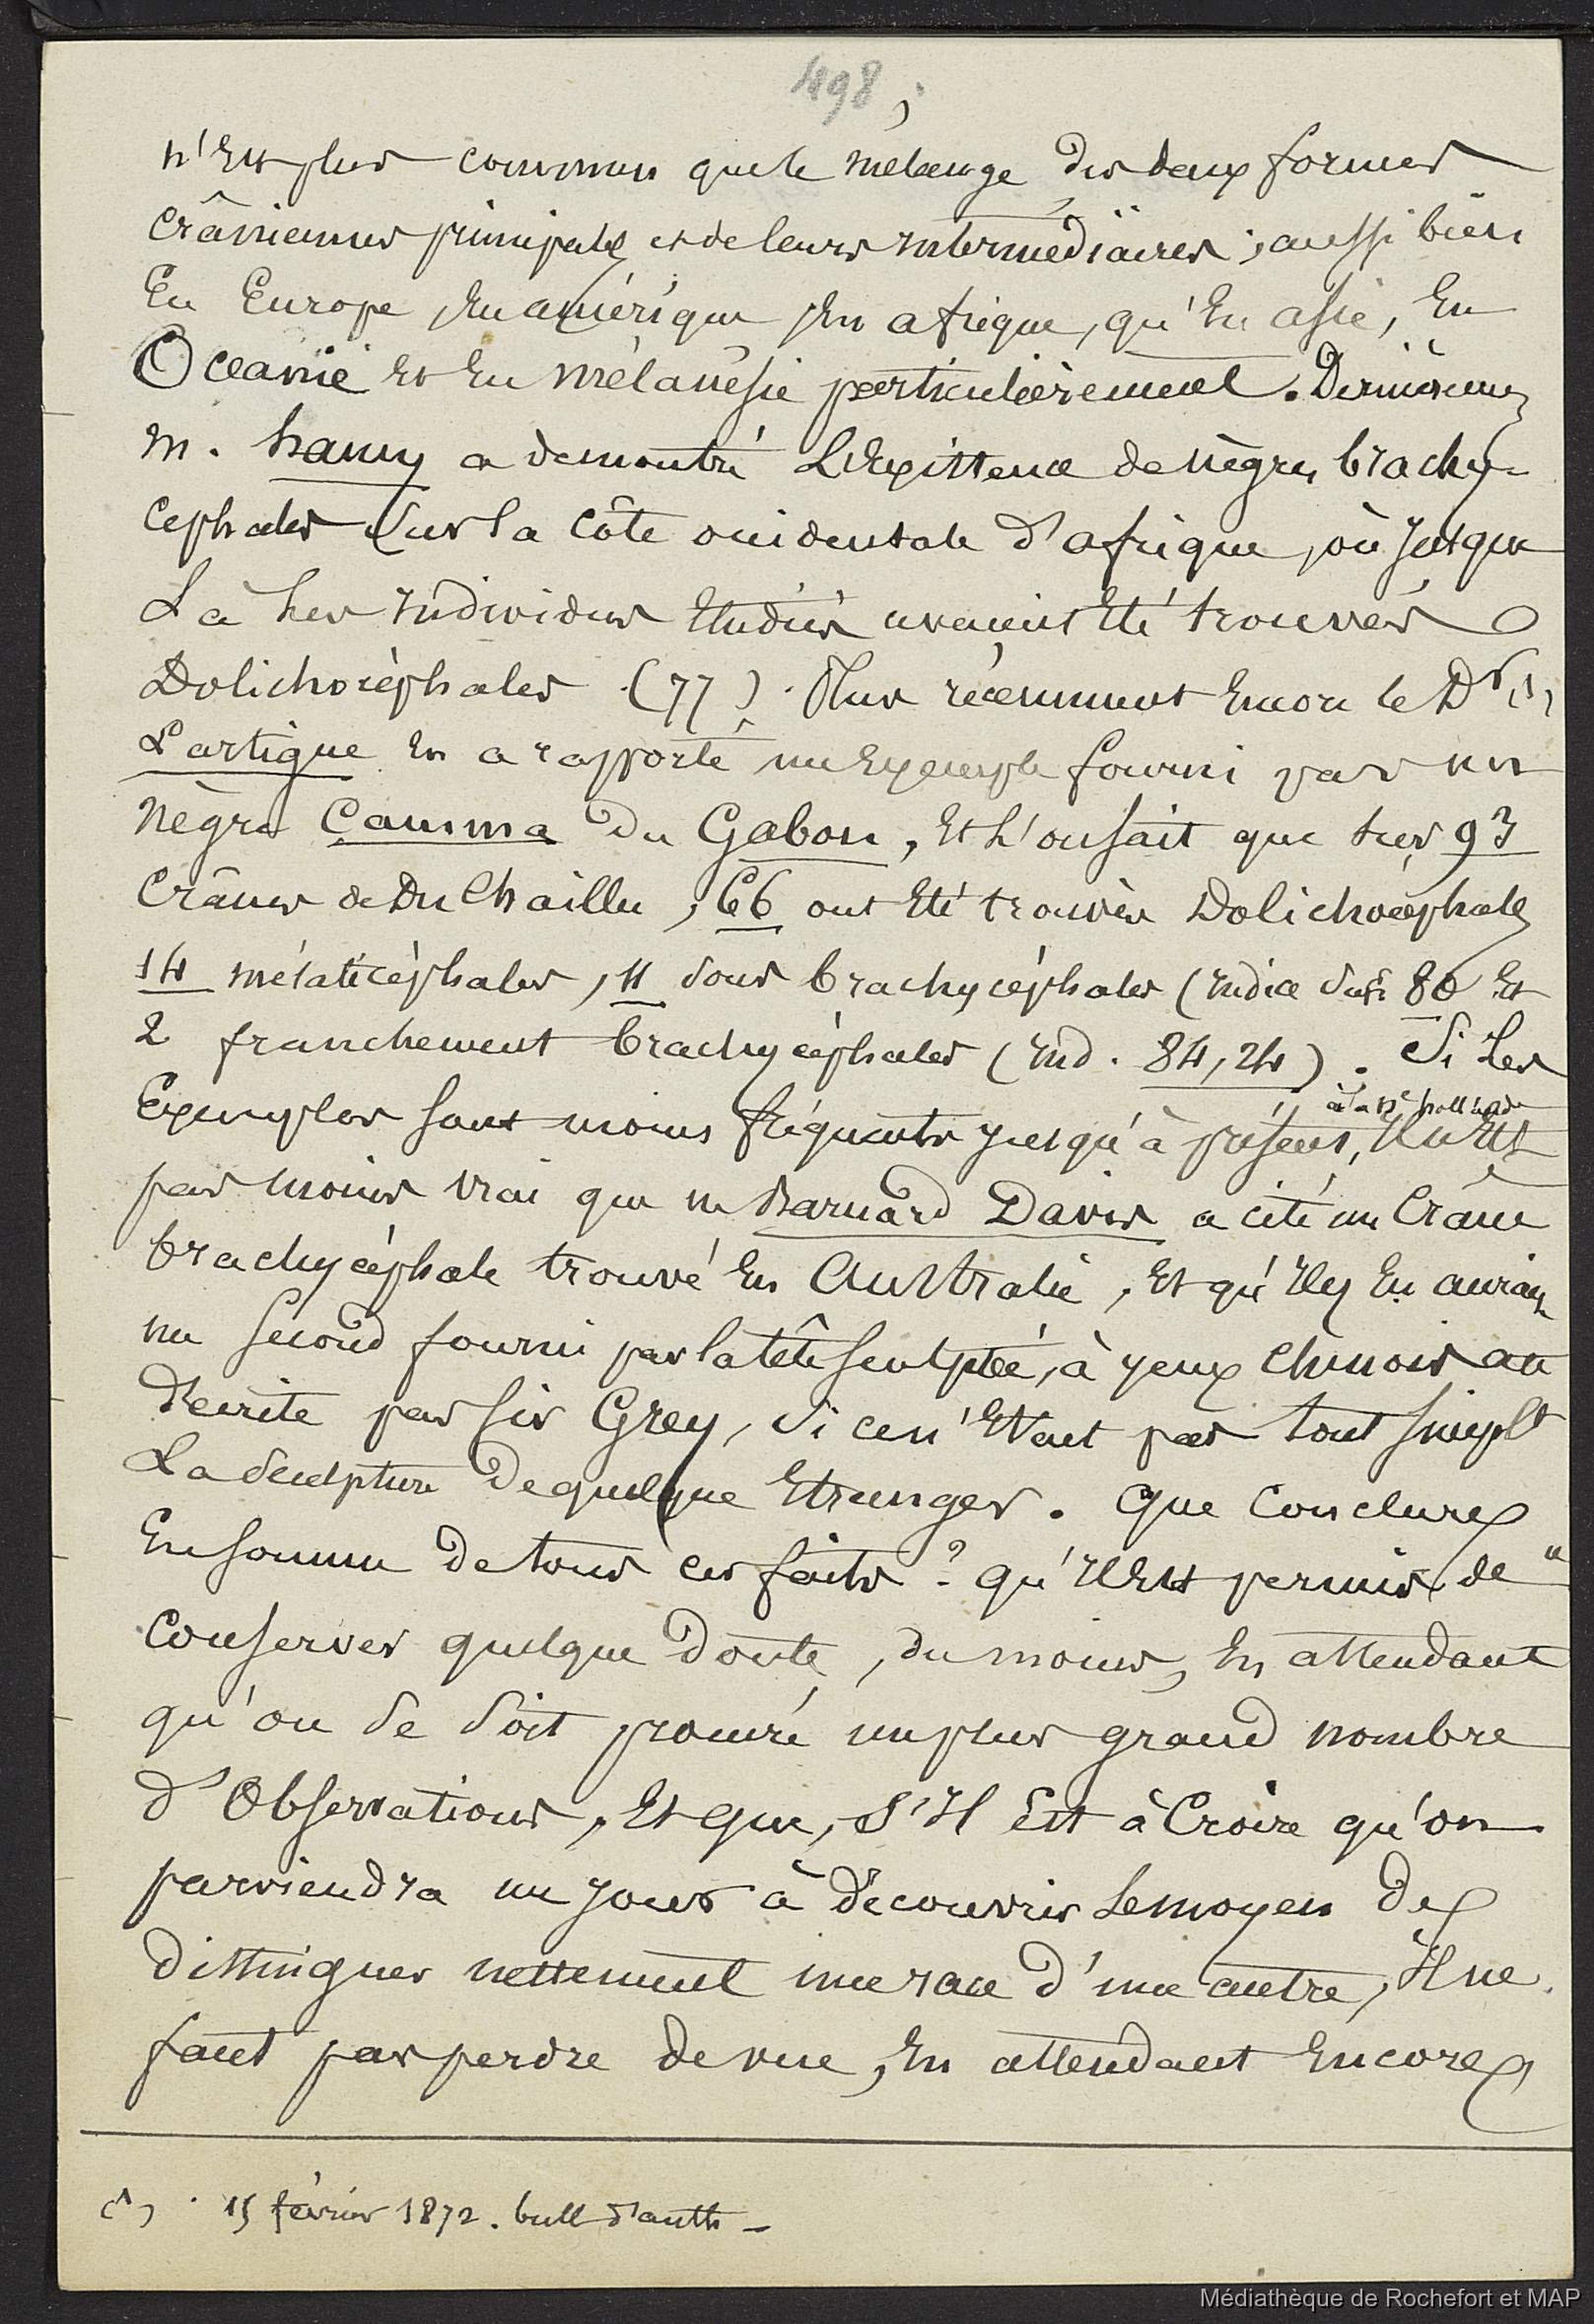 498
n'est plus commun que le mélange des deux formes
crâniennes principales et de leurs intermédiaires, aussi bien
En Europe, En amérique, En afrique, qu'En asie, En
Océanie et En mélanésie particulièrement. Dernièremt
M. hamy a demontré L'Existence de nègres brachy-
céphales sur la côte occidentale d'afrique, où jusque
Là les individus Etudiés avaient Eté trouvés
Dolichocéphales (77). Plus récemment Encore le Dr (1)
Lartigue En a rapporté un Exemple fourni par un
nègre Camma du Gabon, Et L'on sait que sur 93
Crânes de Du Chaillu, 66 ont Eté trouvés Dolichocéphales
14 mésaticéphales, 11 sous brachycéphales (indice 80 Et
2 franchement brachycéphales (ind. 84,24). Si Les
à la nlle hollande
Exemples sont moins fréquents jusqu'à présent, il n'Est
pas moins vrai que m Barnard Davis a cité un Crâne
brachycéphale trouvé En Australie, Et qu'il y En aurait
un second fourni par la tête sculptée, à yeux chinois
décrite par sir Grey, si ce n'Etait pas tout simplt
La sculpture de quelque Etranger. Que conclure
En somme de tous ces faits? qu'il Est permis de
Conserver quelque doute, du moins, En attendant
qu'on se soit procuré un plus grand nombre
d'Observations, Et que, s'il Est à Croire qu'on
parviendra un jour à découvrir Le moyen de
distinguer nettement une race d'une autre, il ne
faut pas perdre de vue, En attendant Encore
(1) . 15 février 1872. bull d'anth –
Médiathèque de Rochefort et MAP